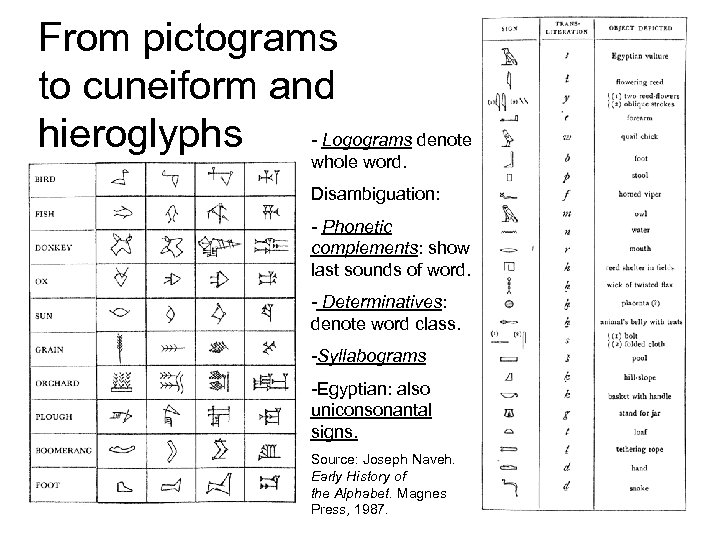 From pictograms
to cuneiform and
hieroglyphs
- Logograms denote
whole word.
Disambiguation:
- Phonetic
complements: show
last sounds of word.
- Determinatives:
denote word class.
-Syllabograms
-Egyptian: also
uniconsonantal
signs.
Source: Joseph Naveh.
Early History of
the Alphabet. Magnes
Press, 1987.
BIRD
FISH
DONKEY
OX
SUN
GRAIN
ORCHARD
PLOUGH
BOOMERANG
FOOT
SIGN TRANS-LITERATION OBJECT DEPICTED
Egyptian vulture
flowering reed
y (1) two reed-flowers
(2) oblique strokes
forearm
w quail chick
b foot
p stool
f horned viper
m owl
n water
r mouth
reed shelter in fields
wick of twisted flax
placenta (?)
animal's belly with teats
s (1) bolt
(2) folded cloth
pool
hill-slope
basket with handle
g stand for jar
t loaf
tethering rope
d hand
snake